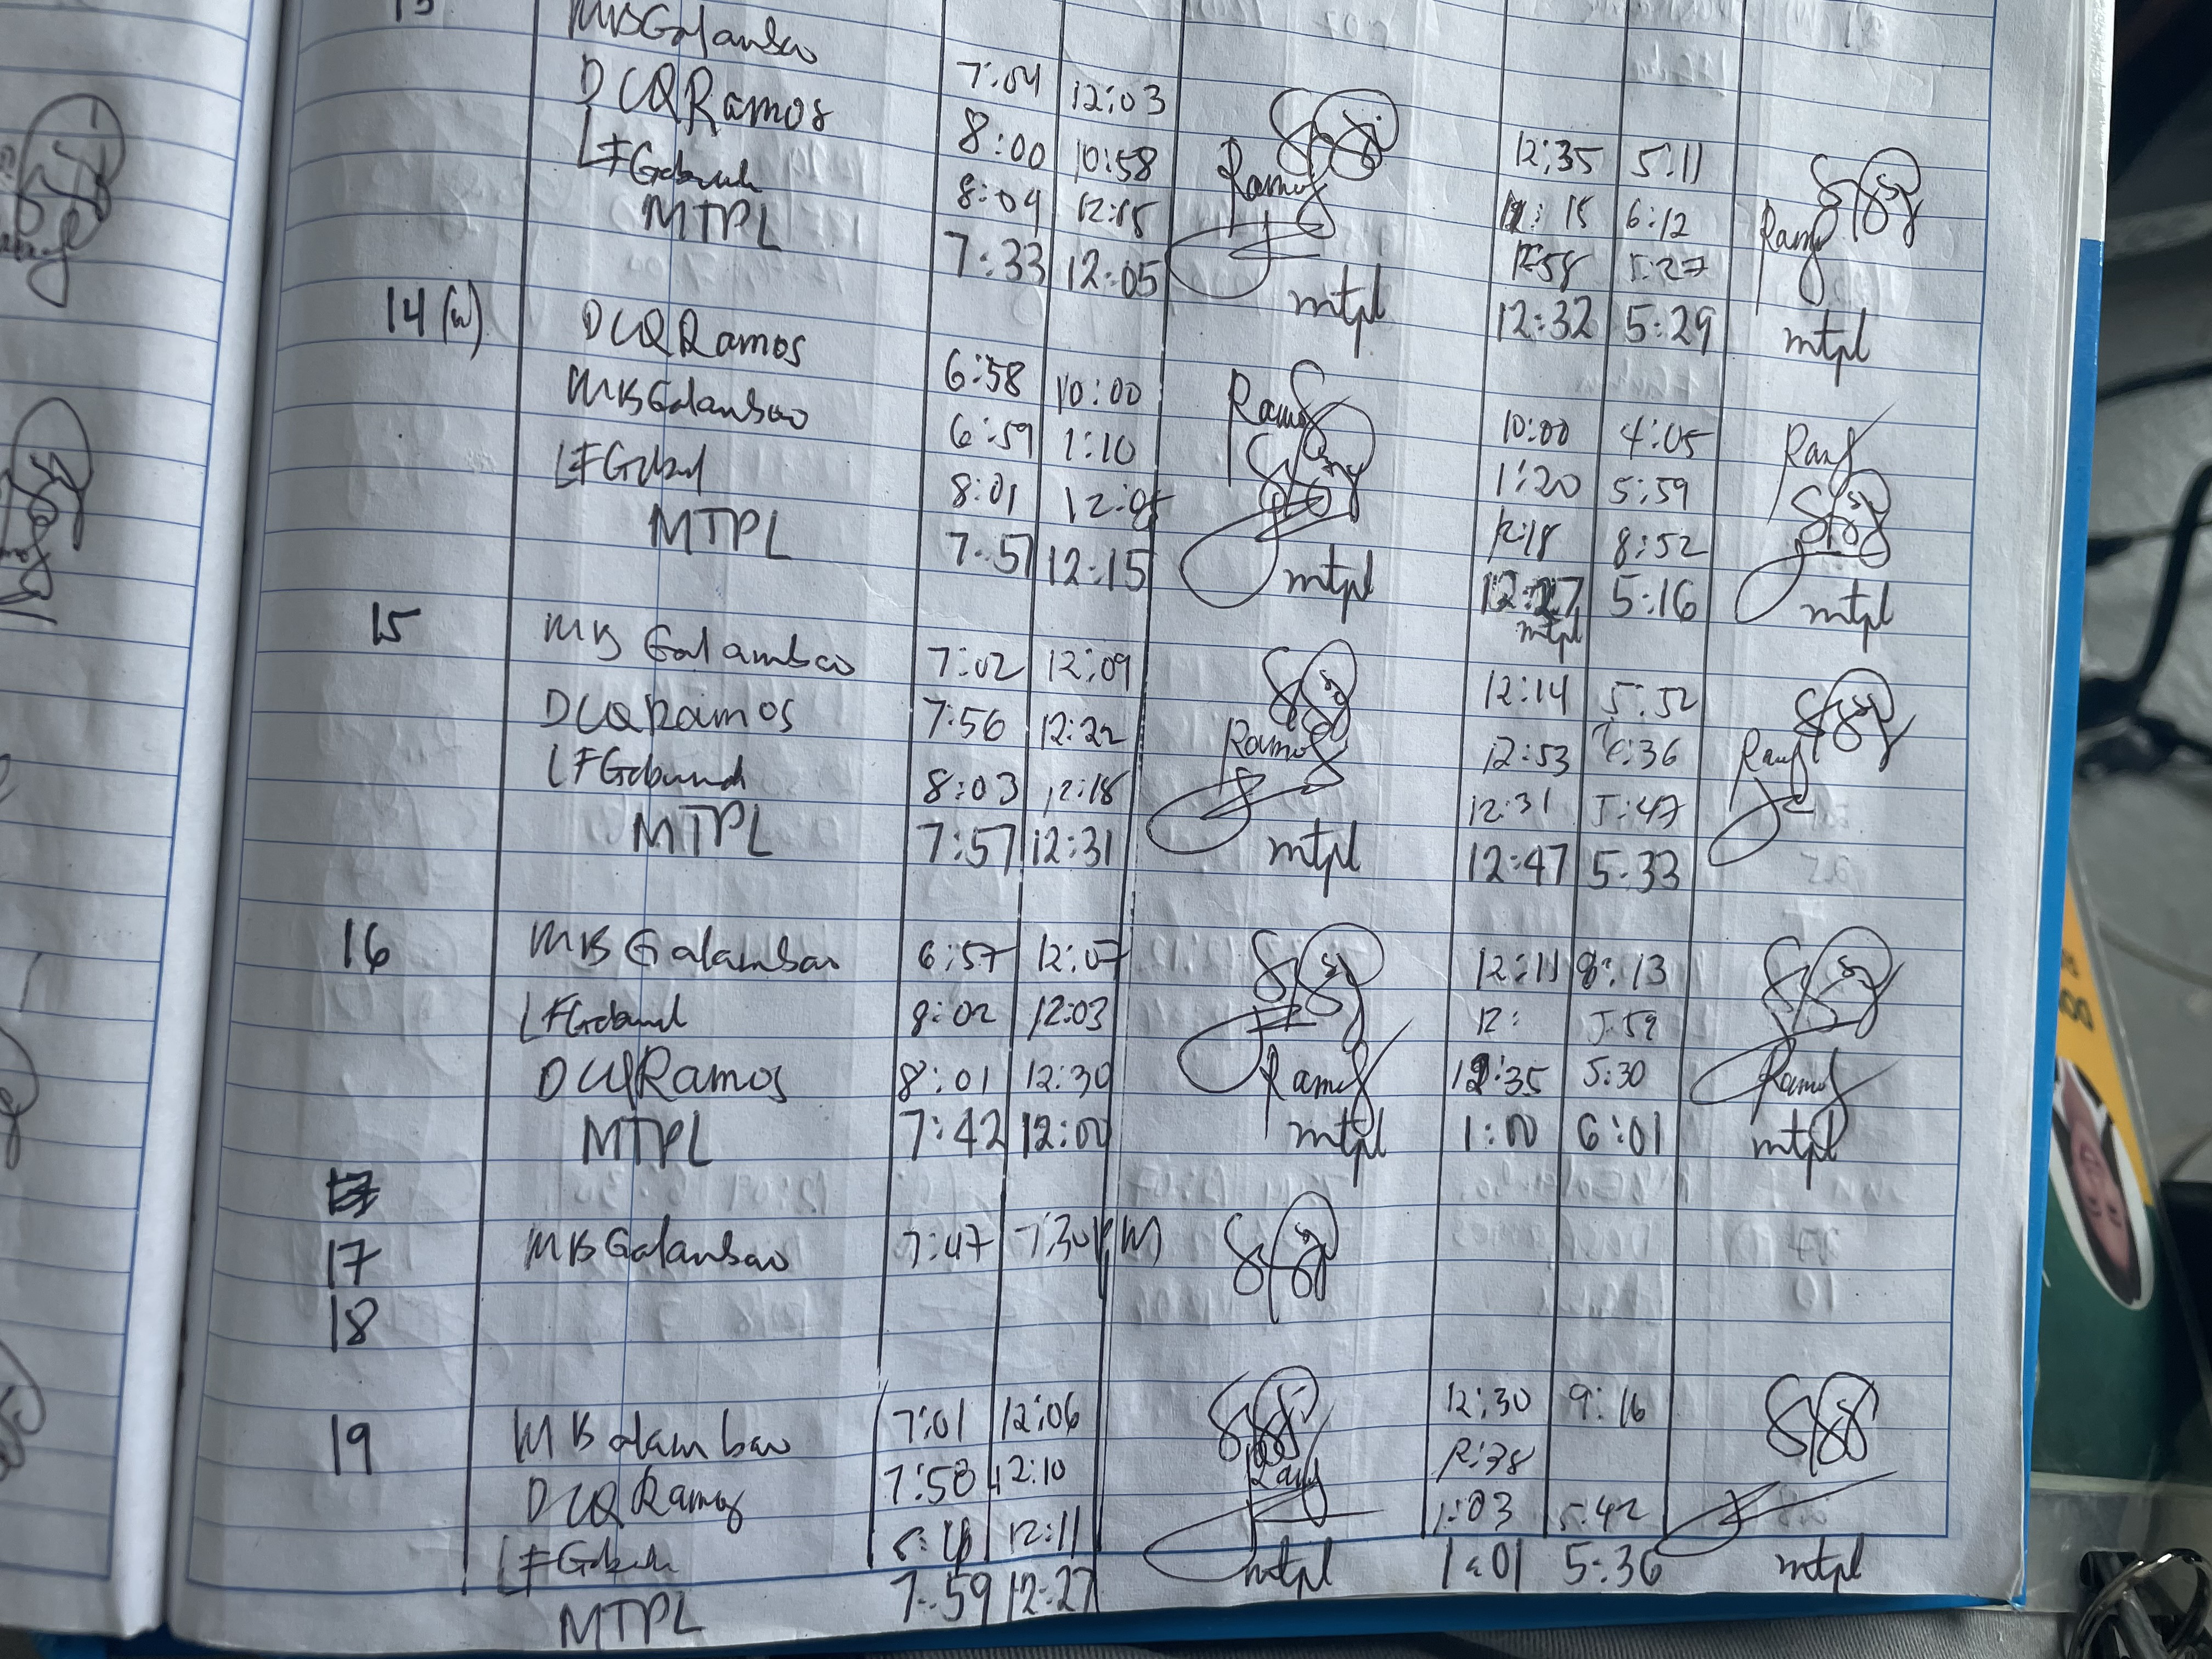 13 MBGalambao 7:04 12:03 12:35 5:11
DCQRamos 8:00 10:58 Ramos 11:15 6:12 Ramos
LFGabunch 8:09 12:15 12:58 5:27
MTPL 7:33 12:05 mtpl 12:32 5:29 mtpl
14 (w) DCQRamos 6:58 10:00 Ramos 10:00 4:05 Ramos
MBGalambao 6:59 1:10 1:20 5:59
8:01 12:05 12:18 8:52
MTPL 7:51 12:15 mtpl 12:27 5:16 mtpl
mtpl
15 MB Galambao 7:02 12:09 12:14 5:52
DCQRamos 7:56 12:22 Ramos 12:53 6:36 Ramos
8:03 12:18 12:31 5:47
MTPL 7:57 12:31 mtpl 12:47 5:33
16 MB Galambao 6:57 12:07 12:11 8:13
8:02 12:03 12: 5:59
DCQRamos 8:01 12:30 Ramos 12:35 5:30 Ramos
MTPL 7:42 12:00 mtpl 1:00 6:01 mtpl
17 MBGalambao 7:47 7:30PM
18
19 MBGalambao 7:01 12:06 12:30 9:16
DCQRamos 7:58 12:10 Ramos 12:38
12:11 1:03 5:42
MTPL 7:59 12:27 mtpl 1:01 5:36 mtpl